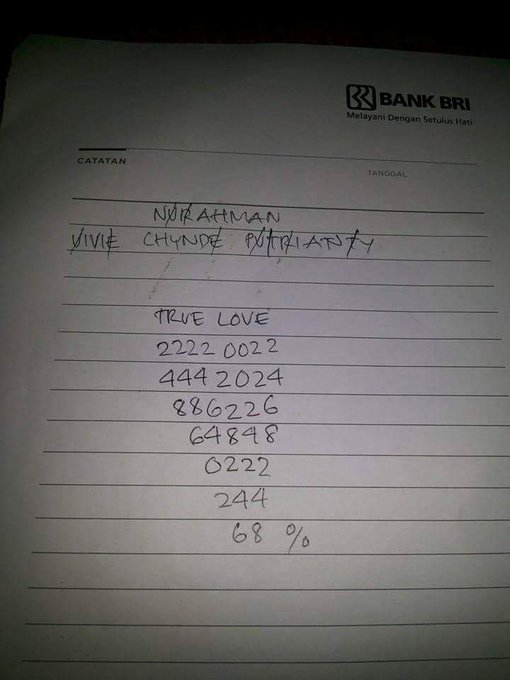 BANK BRI
Melayani Dengan Setulus Hati
CATATAN
TANGGAL
NURAHMAN
VIVIE CHYNDE PUTRIANTY
TRUE LOVE
2222 0022
444 2024
886226
64848
0222
244
68 %